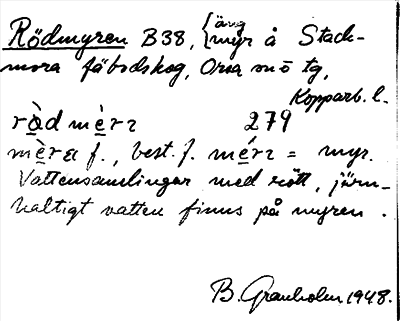 Rödmyren B38, { äng
myr å Stack-
mora fäbodskog, Orsa sn ö tg,
Kopparb. l.
rɑ̀d mɛ̀rɪ 279
mɛ̀ra f., best. f. mɛ́rɪ = myr.
Vattensamlingar med rött, järn-
haltigt vatten finns på myren.
B. Granholm 1948.